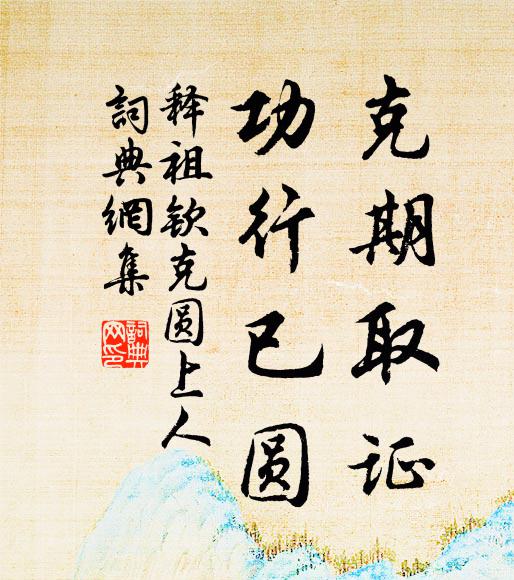 克期取证
功行已圆
释祖钦克圆上人
詞典網集
詞典网印